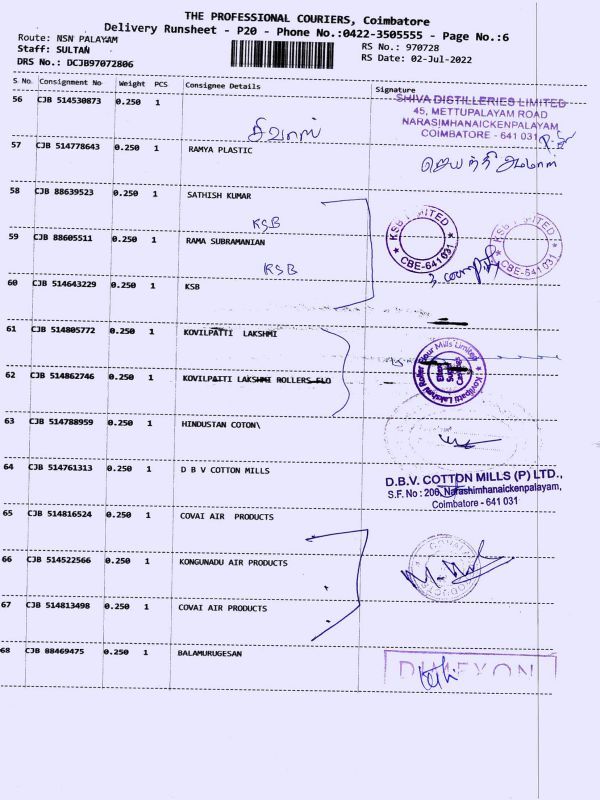 THE PROFESSIONAL COURIERS, Coimbatore
Delivery Runsheet - P20 - Phone No.:0422-3505555 - Page No.:6
Route: NSN PALAYAM
Staff: SULTAN
DRS No.: DCJB97072806
RS No.: 970728
RS Date: 02-Jul-2022
S No. Consignment No Weight PCS Consignee Details Signature
56 CJB 514530873 0.250 1
SHIVA DISTILLERIES LIMITED
45, METTUPALAYAM ROAD
NARASIMHANAICKENPALAYAM
COIMBATORE - 641 031
57 CJB 514778643 0.250 1 RAMYA PLASTIC
58 CJB 88639523 0.250 1 SATHISH KUMAR
KSB
KSB LIMITED
CBE-641 031
KSB LIMITED
CBE-641 031
59 CJB 88605511 0.250 1 RAMA SUBRAMANIAN
KSB
60 CJB 514643229 0.250 1 KSB
61 CJB 514805772 0.250 1 KOVILPATTI LAKSHMI
Kovilpatti Lakshmi Roller Flour Mills Limited
62 CJB 514862746 0.250 1 KOVILPATTI LAKSHMI ROLLERS FLO
63 CJB 514788959 0.250 1 HINDUSTAN COTON\
64 CJB 514761313 0.250 1 D B V COTTON MILLS
D.B.V. COTTON MILLS (P) LTD.,
S.F. No : 206, Narashimhanaickenpalayam,
Coimbatore - 641 031
65 CJB 514816524 0.250 1 COVAI AIR PRODUCTS
66 CJB 514522566 0.250 1 KONGUNADU AIR PRODUCTS
67 CJB 514813498 0.250 1 COVAI AIR PRODUCTS
68 CJB 88469475 0.250 1 BALAMURUGESAN